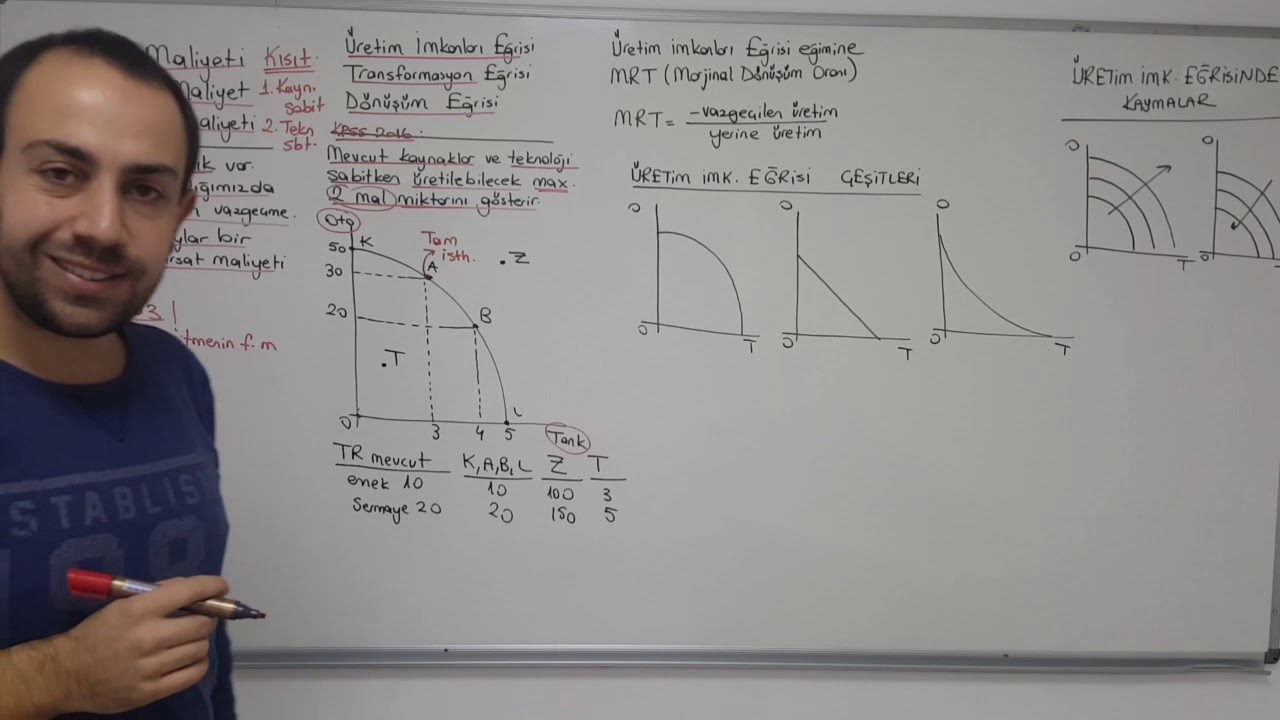 Maliyeti Kısıt.
Maliyet 1. Kayn. sabit
aliyeti 2. Tekn sbt.
ık var.
ığımızda
vazgeçme.
ylar bir
rsat maliyeti
3 !
tmenin f. m
Üretim İmkanları Eğrisi
Transformasyon Eğrisi
Dönüşüm Eğrisi
KPSS 2016:
Mevcut kaynaklar ve teknoloji
sabitken üretilebilecek max.
2 mal miktarını gösterir.
Oto
50 K
Tam
isth.
30 A
. Z
20 B
.T
0 3 4 5 L
Tank
TR mevcut K,A,B,L Z T
emek 10 10 100 3
Sermaye 20 20 150 5
Üretim imkanları Eğrisi eğimine
MRT (Marjinal Dönüşüm Oranı)
MRT = -vazgeçilen üretim
yerine üretim
ÜRETİM İMK. EĞRİSİ ÇEŞİTLERİ
O O O
0 T 0 T 0 T
ÜRETİM İMK. EĞRİSİNDE
KAYMALAR
O O
0 T 0
STABLIS